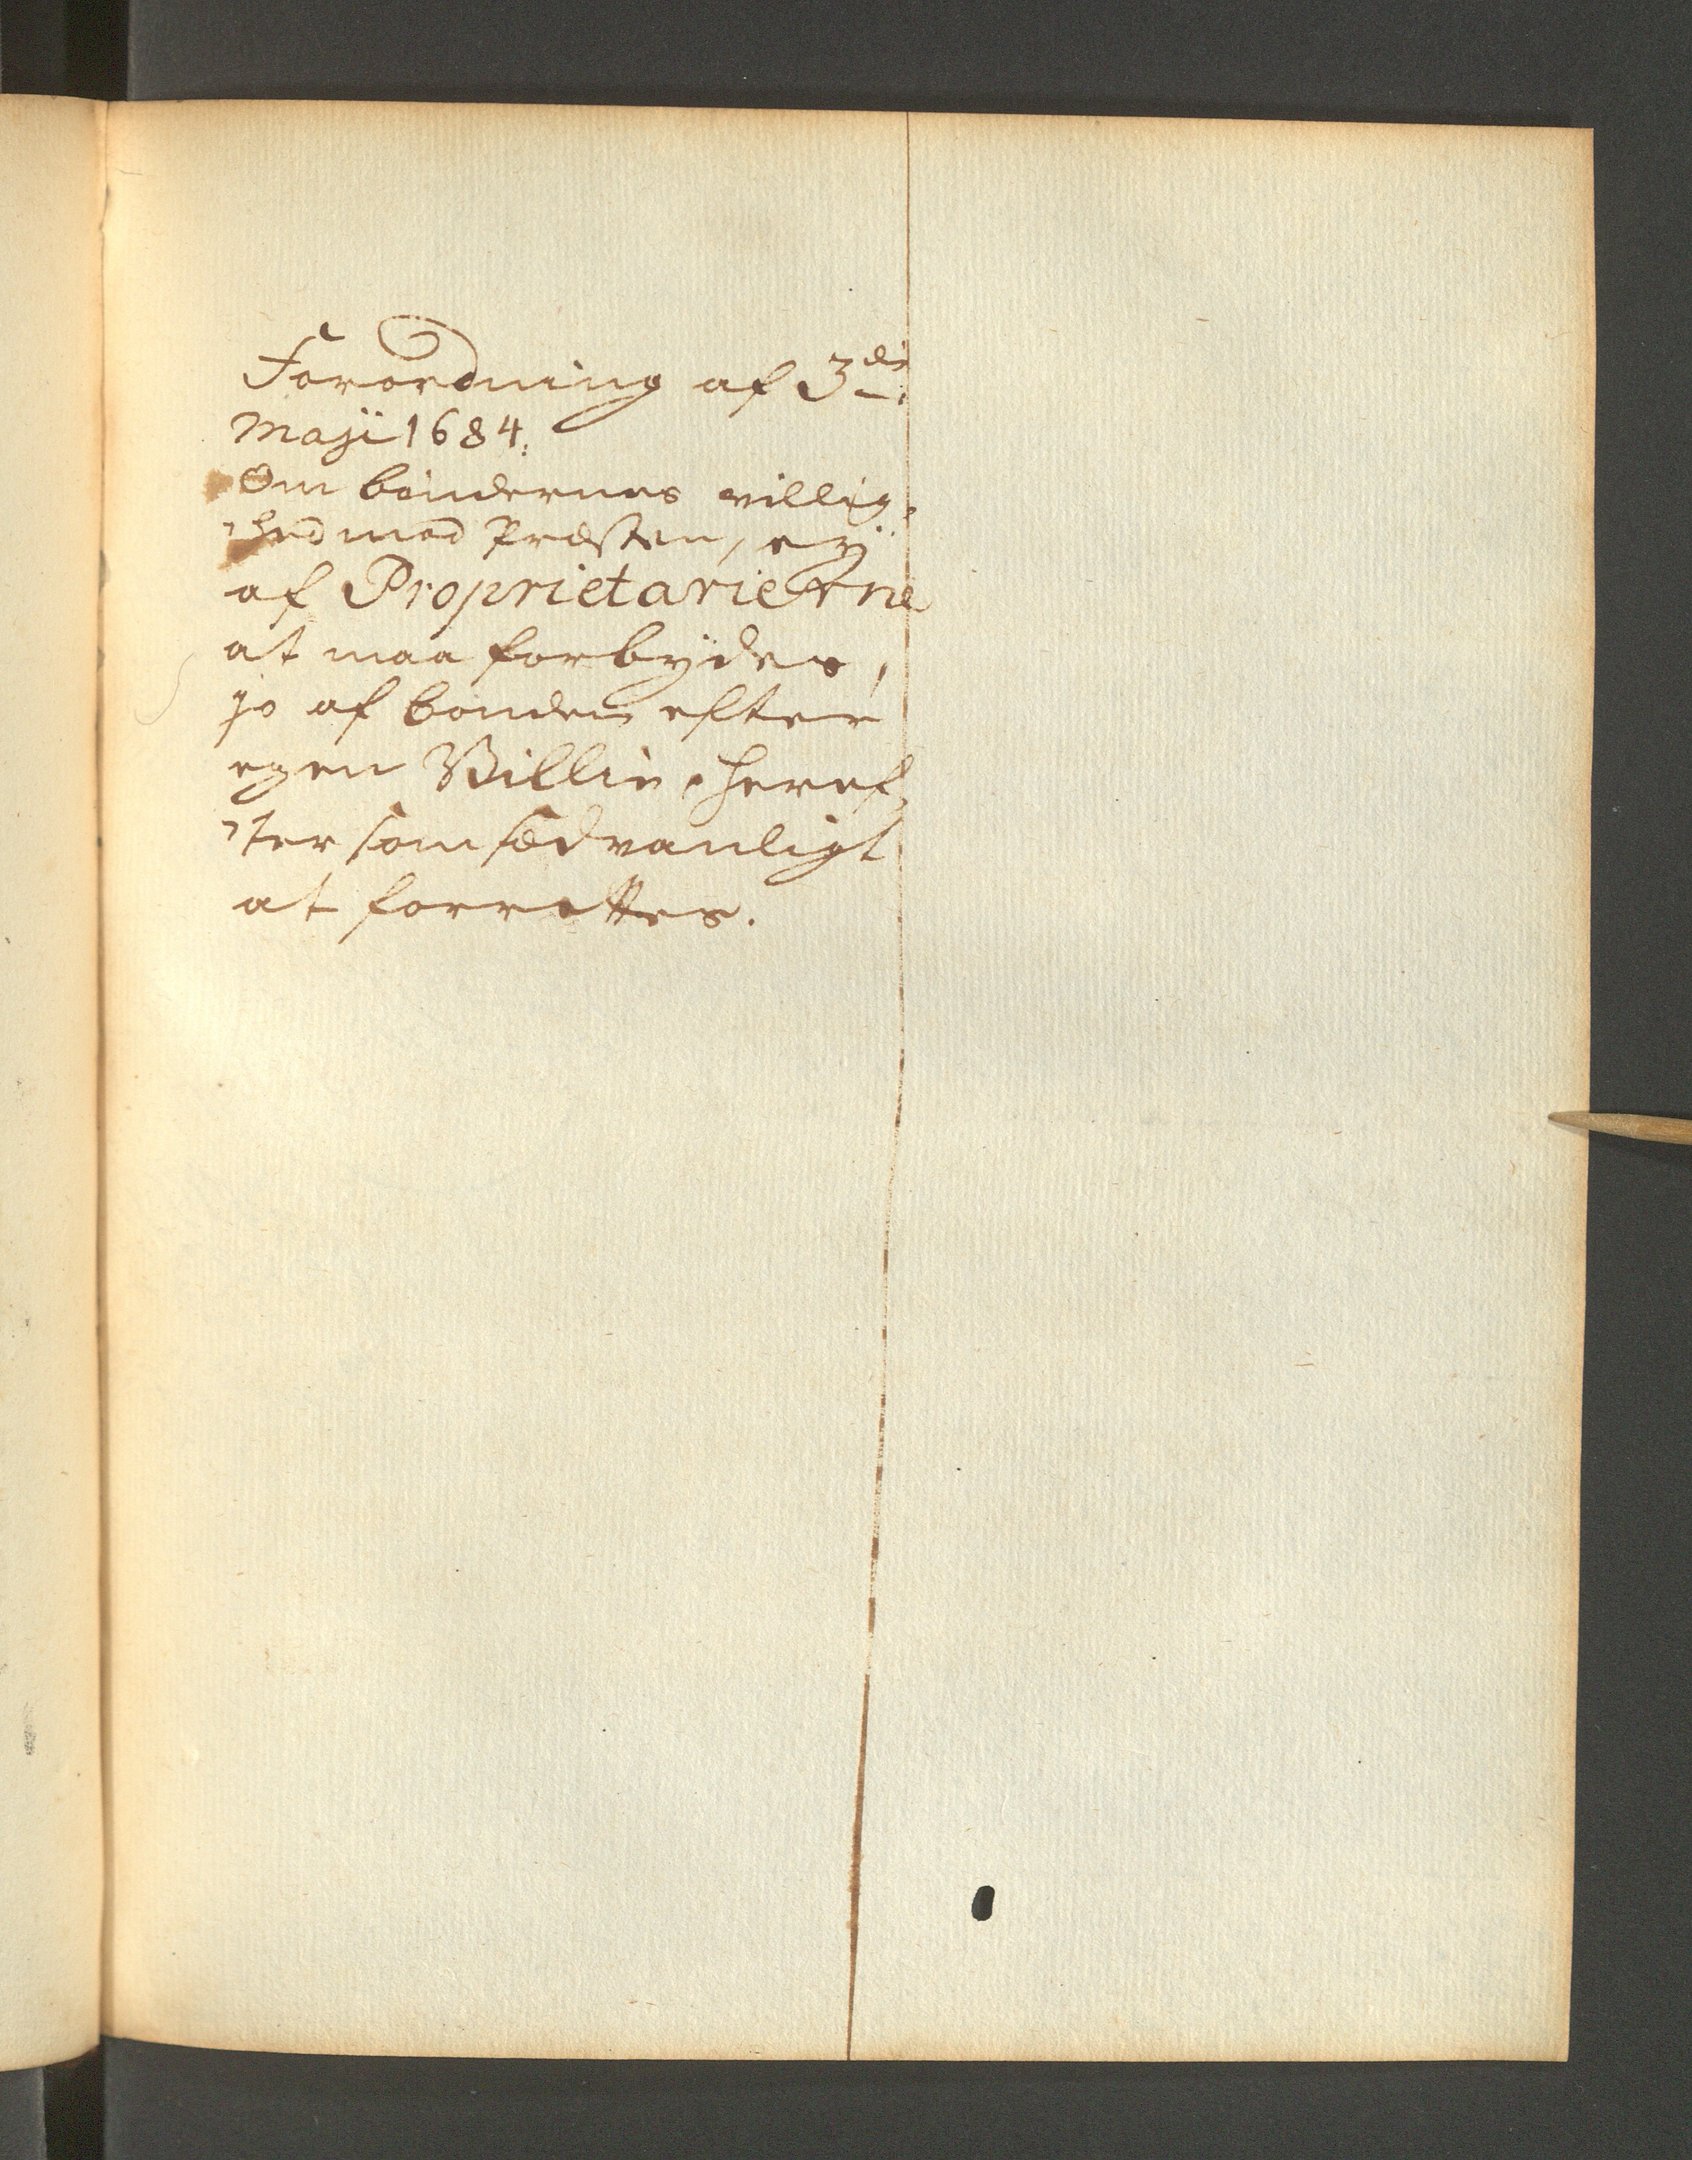 Forordning af 3die
Maji 1684.
Om bøndernes villig-
-hed mod Præsten, eÿ
af Proprietarierne
at maa forbÿdes,
jo af bonden efter
egen Villie, heref-
-ter som sædvanligt
at forrettes.